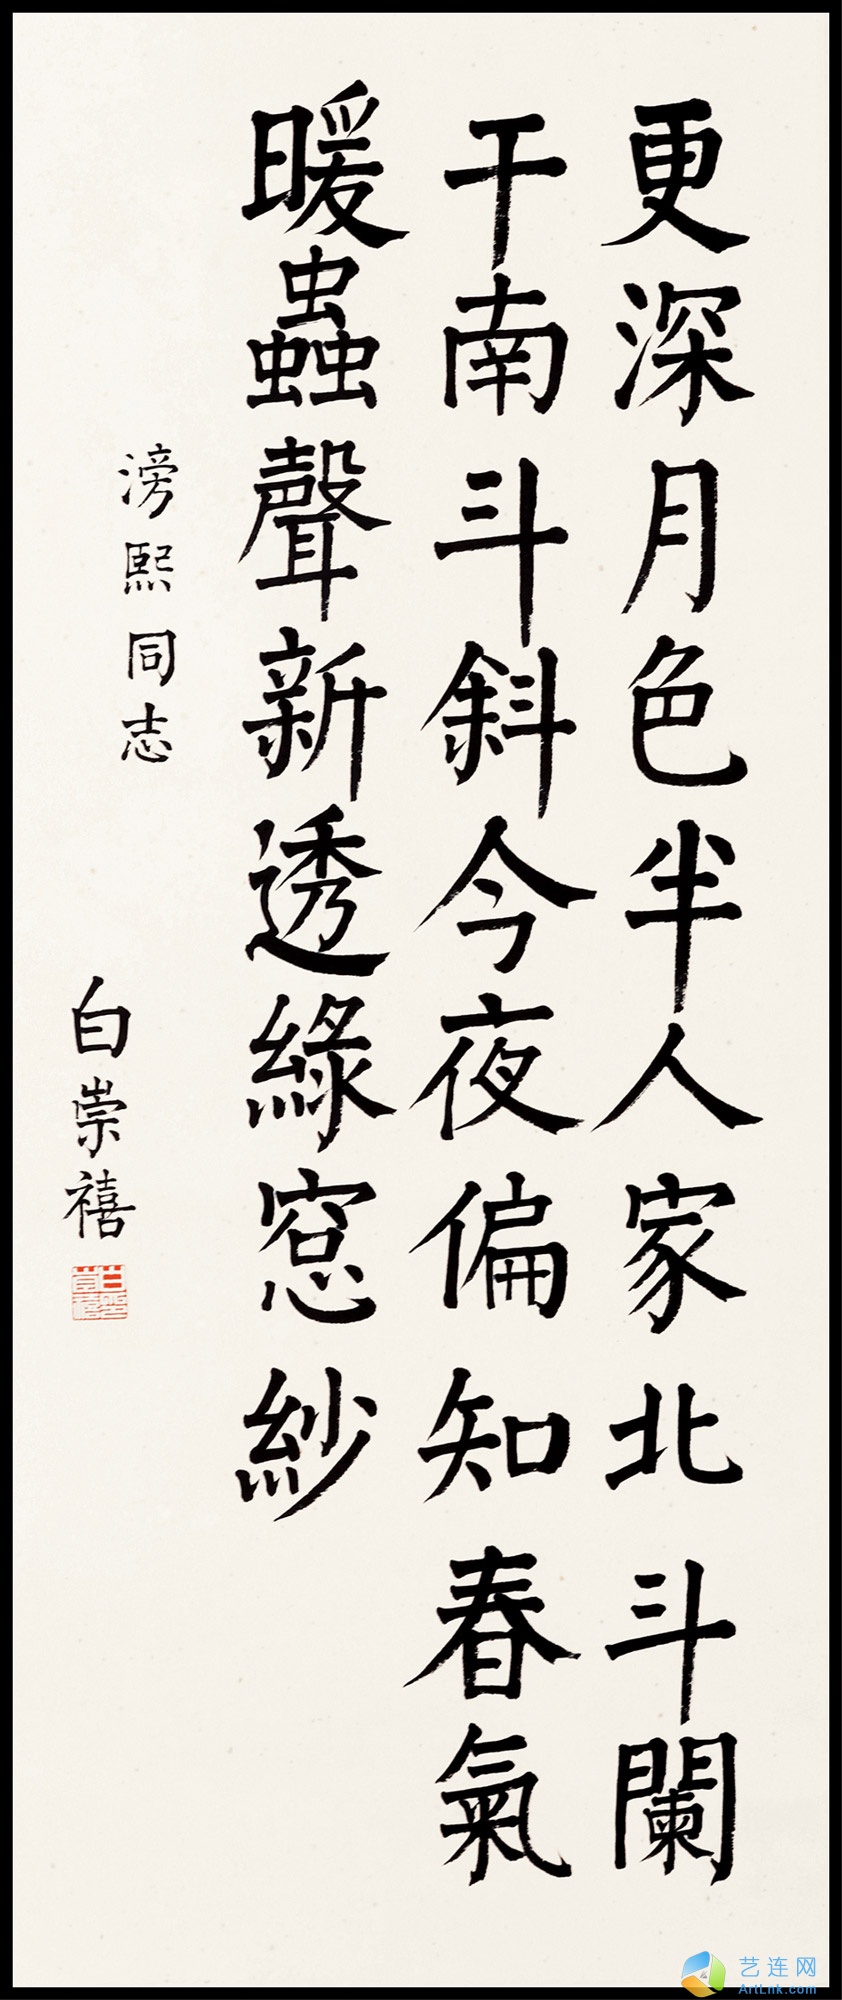 更深月色半人家北斗闌
干南斗斜今夜偏知春氣
暖蟲聲新透綠窓紗
滂熙同志
白崇禧
艺连网
ArtLnk.com